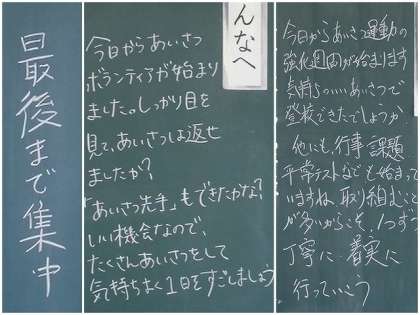 最後まで集中
んなへ
今日からあいさつ
ボランティアが始まり
ました。しっかり目を
見て、あいさつは返せ
ましたか?
「あいさつ先手」もできたかな?
いい機会なので、
たくさんあいさつをして
気持ちよく1日をすごしましょう
今日からあいさつ運動の
強化週間が始まります
気持ちのいいあいさつで
登校できたでしょうか
他にも、行事 課題
平常テストなども始まって
いますね 取り組むこと
が多いからこそ、1つずつ
丁寧に 着実に
行っていこう